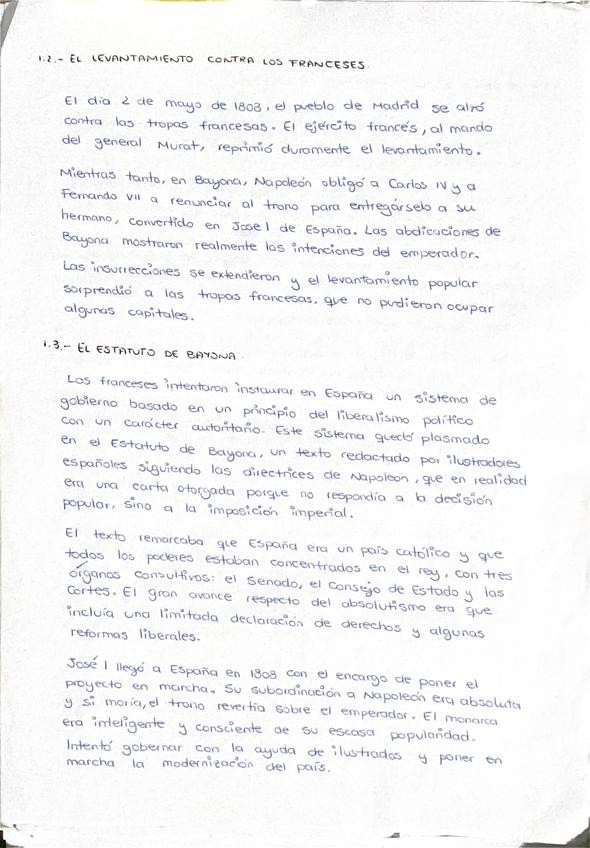 1.2.- EL LEVANTAMIENTO CONTRA LOS FRANCESES.
El día 2 de mayo de 1808, el pueblo de Madrid se alzó
contra las tropas francesas. El ejército francés, al mando
del general Murat, reprimió duramente el levantamiento.
Mientras tanto, en Bayona, Napoleón obligó a Carlos IV y a
Fernando VII a renunciar al trono para entregárselo a su
hermano, convertido en José I de España. Las abdicaciones de
Bayona mostraron realmente las intenciones del emperador.
Las insurrecciones se extendieron y el levantamiento popular
sorprendió a las tropas francesas, que no pudieron ocupar
algunas capitales.
1.3.- EL ESTATUTO DE BAYONA.
Los franceses intentaron instaurar en España un sistema de
gobierno basado en un principio del liberalismo político
con un carácter autoritario. Este sistema quedó plasmado
en el Estatuto de Bayona, un texto redactado por ilustradores
españoles siguiendo las directrices de Napoleón, que en realidad
era una carta otorgada porque no respondía a la decisión
popular, sino a la imposición imperial.
El texto remarcaba que España era un país católico y que
todos los poderes estaban concentrados en el rey, con tres
órganos consultivos: el Senado, el Consejo de Estado y las
Cortes. El gran avance respecto del absolutismo era que
incluía una limitada declaración de derechos y algunas
reformas liberales.
José I llegó a España en 1808 con el encargo de poner el
proyecto en marcha. Su subordinación a Napoleón era absoluta
y si moría, el trono revertía sobre el emperador. El monarca
era inteligente y consciente de su escasa popularidad.
Intentó gobernar con la ayuda de ilustrados y poner en
marcha la modernización del país.